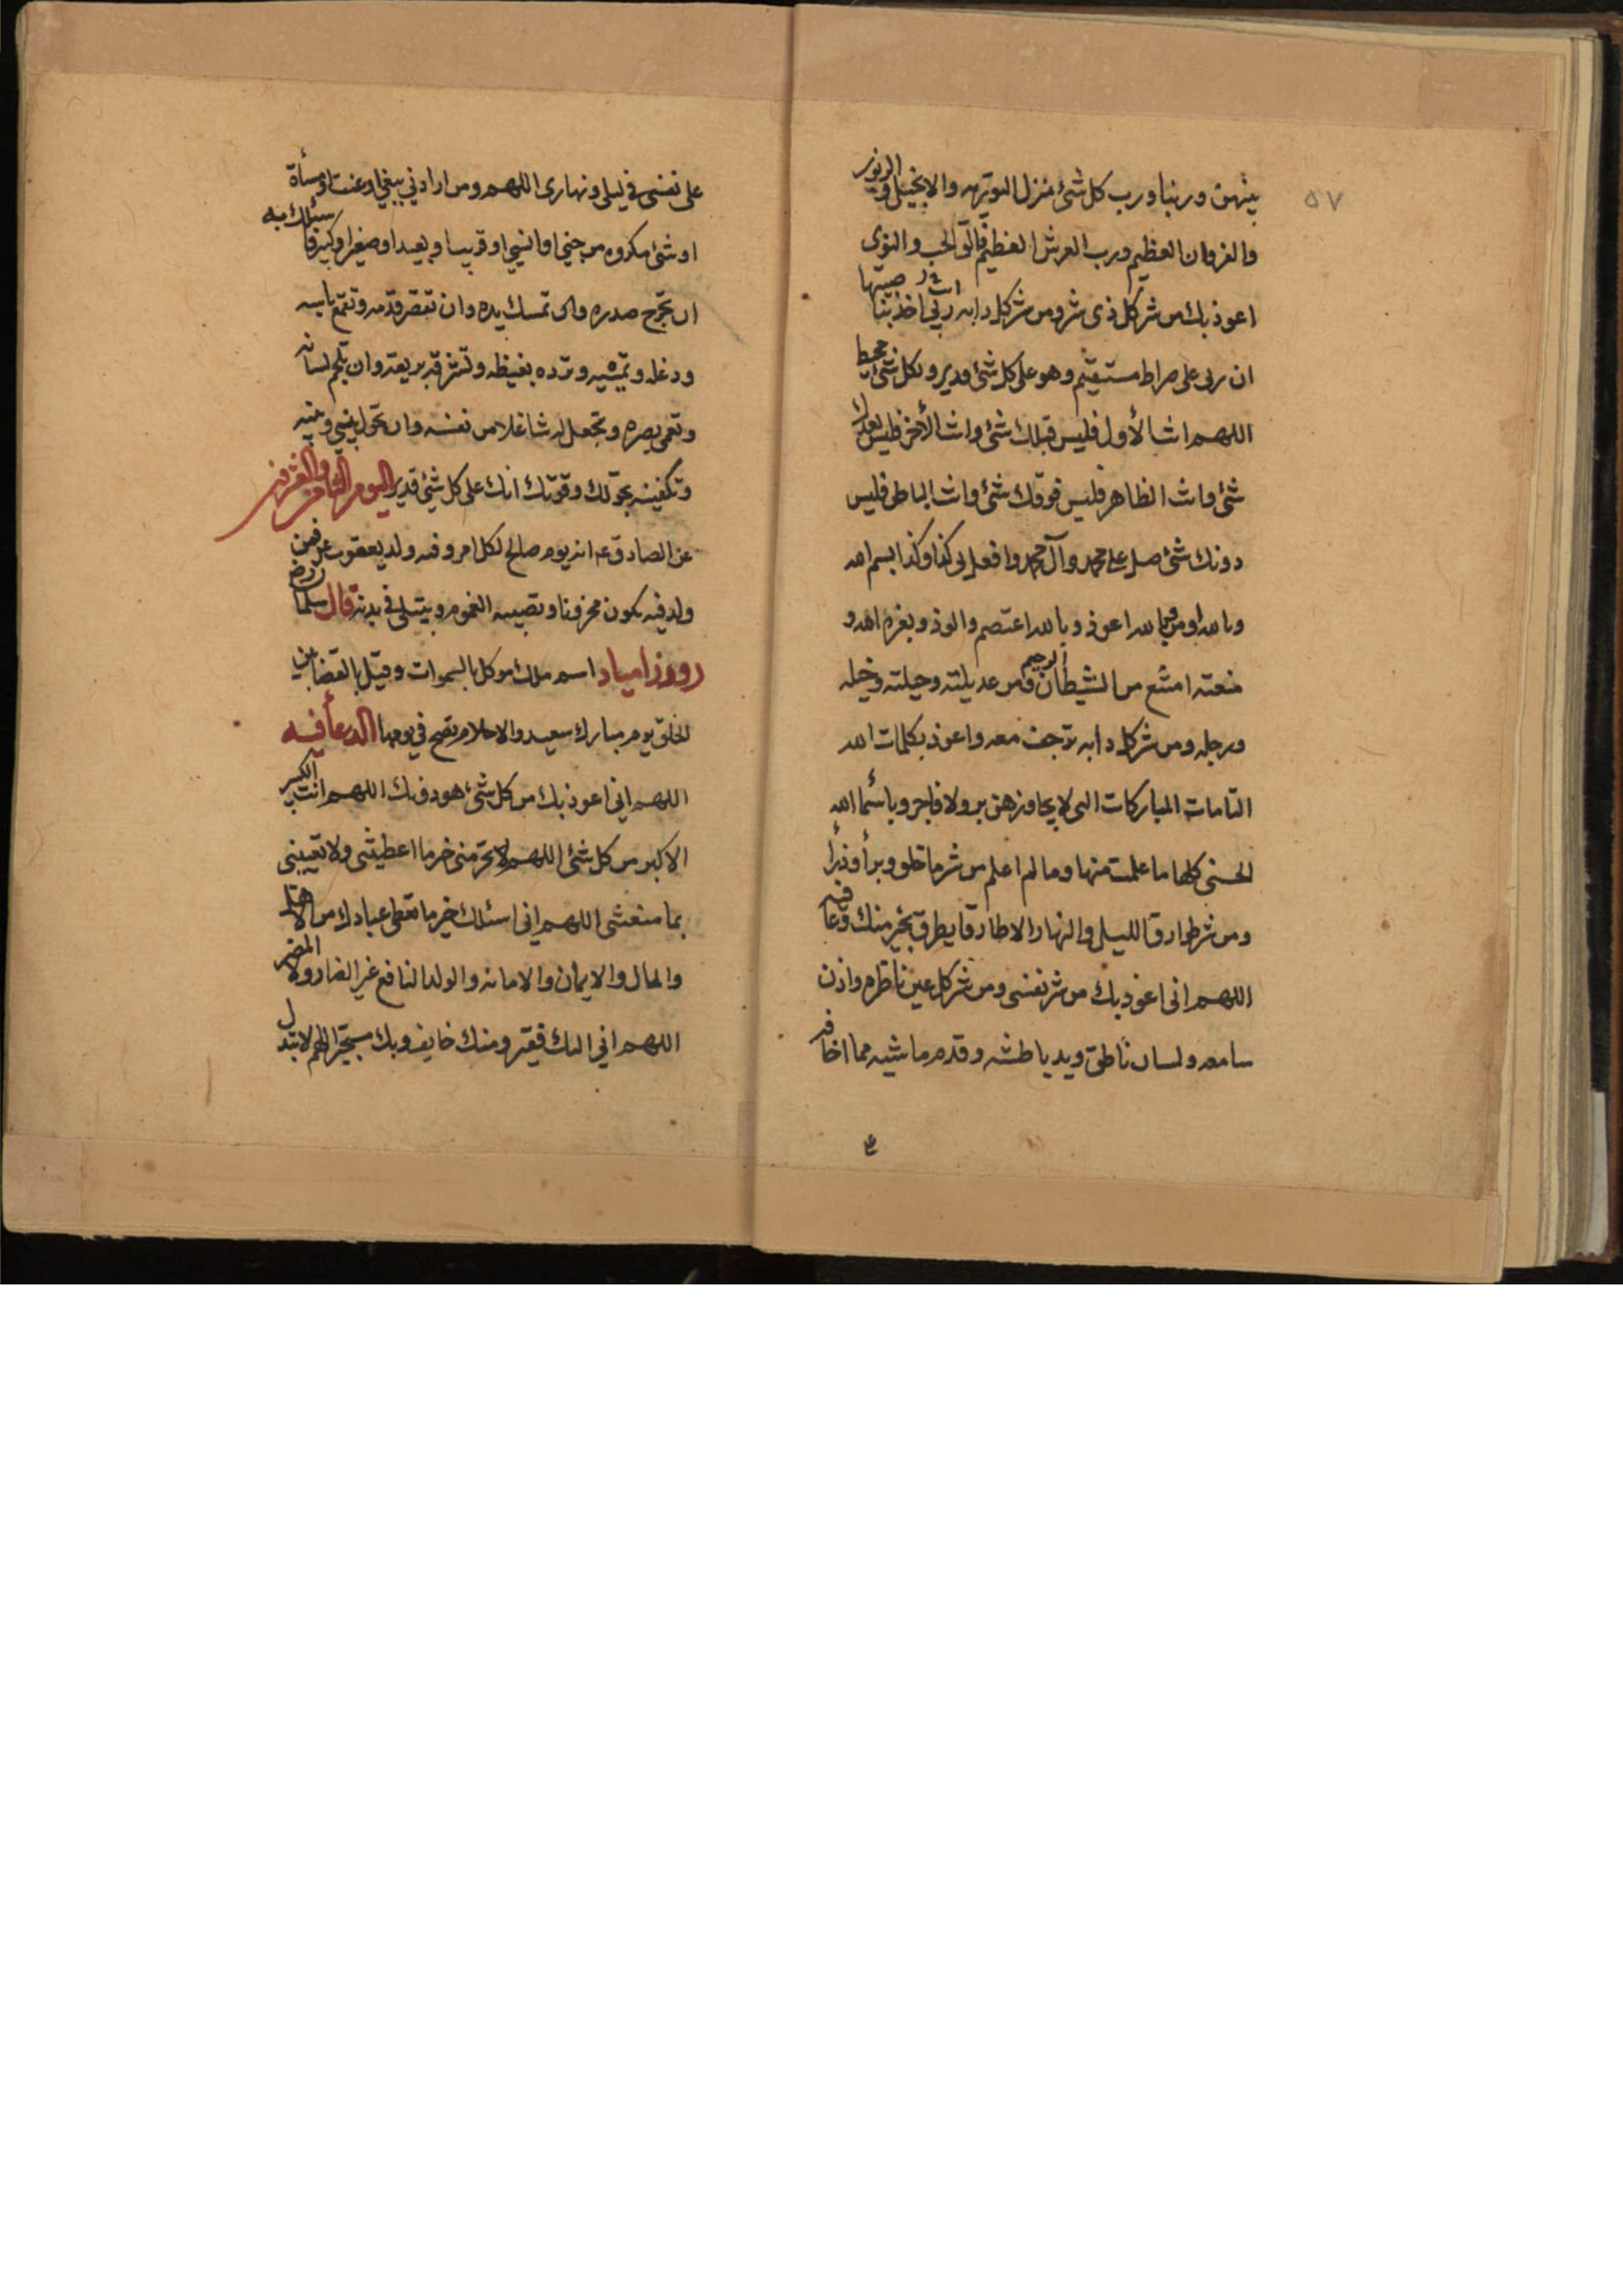 ٥٧
بينهن وربنا ورب كل شئ منزل التورية والانجيل والزبور
والفرقان العظيم ورب العرش العظيم فالق الحب والنوى
اعوذ بك من شر كل ذى شر ومن شر كل دابه ربي اخذ بناصيتها
ان ربى على صراط مستقيم وهو على كل شئ قدير وبكل شئ محيط
اللهم انت الأول فليس قبلك شئ وانت الأخر فليس بعدك
شئ وانت الظاهر فليس فوقك شئ وانت الباطن فليس
دونك شئ صل على محمد وآل محمد وافعل بى كذا وكذا بسم الله
وبالله اعوذ وبالله اعتصم والوذ وبعزة الله و
منعته امتنع من الشيطان الرجيم ومن عديلته وحيلته وخيله
ورجله ومن شر كل دابه ترجف معه واعوذ بكلمات الله
التامات المباركات التى لا يجاوزهن بر ولا فاجر وبأسما الله
الحسنى كلها ما علمت منها وما لم اعلم من شر ما خلق وبرأ وذرأ
ومن شر طوارق الليل والنهار الا طارقا يطرق بخير منك وعافيه
اللهم انى اعوذ بك من شر نفسى ومن شر كل عين ناظره واذن
سامعه ولسان ناطق ويد باطشه وقدم ماشيه مما اخافه
على نفسى فى ليلى ونهارى اللهم ومن ارادني ببغي او عنت او مسأة
او شئ مكروه من جني او انسي او قريب او بعيد او صغير او كبير فاسئلك به
ان تحرج صدره وان تمسك يده وان تقصر قدمه وتقمع باسه
ودغله وترده بغيظه وتشرقه بريقه وان تلجم لسانه
وتعمى بصره وتجعل له شاغلا من نفسه وان تحول بيني وبينه
وتكفينه بحولك وقوتك انك على كل شئ قدير اليوم الثامن والعشرون
عن الصادق ع انه يوم صالح لكل امر وفيه ولد يعقوب ع فمن
ولد فيه يكون محزونا وتصيبه الغموم ويبتلى في بدنه قال سلمان رض
روز زامياد اسم ملك موكل بالسموات وقيل بالقضا بين
الخلق يوم مبارك سعيد والاحلام تصح في يومها الدعأ فيه
اللهم اني اعوذ بك من كل شئ هو دونك اللهم انت الكبير
الاكبر من كل شئ اللهم لا تحرمني خير ما اعطيتنى ولا تفتنى
بما منعتنى اللهم انى اسئلك خير ما تعطى عبادك من الاهل
والمال والايمان والامانه والولد النافع غير الضار ولا المضر
اللهم اني اليك فقير ومنك خايف وبك مستجير اللهم لا تبدل